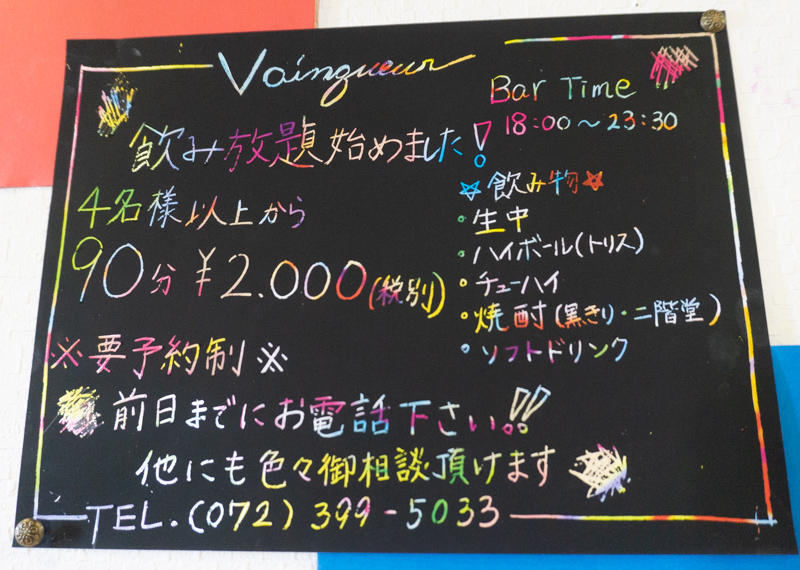 Vainqueur
飲み放題始めました!
4名様以上から
90分 ¥2.000(税別)
※要予約制※
Bar Time
18:00~23:30
☆飲み物☆
・生中
・ハイボール(トリス)
・チューハイ
・焼酎(黒きり・二階堂)
・ソフトドリンク
前日までにお電話下さい!!
他にも色々御相談頂けます
TEL.(072)399-5033